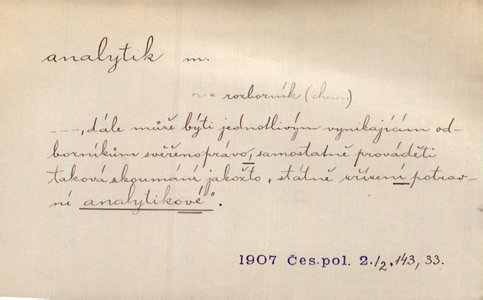 analytik m.
~ = rozborník (chem.)
---, dále může býti jednotlivým vynikajícím od-
borníkům svěřeno právo, samostatně prováděti
taková zkoumání jakožto „státně zřízení potrav-
ní analytikové".
1907 Čes. pol. 2./2, 143, 33.